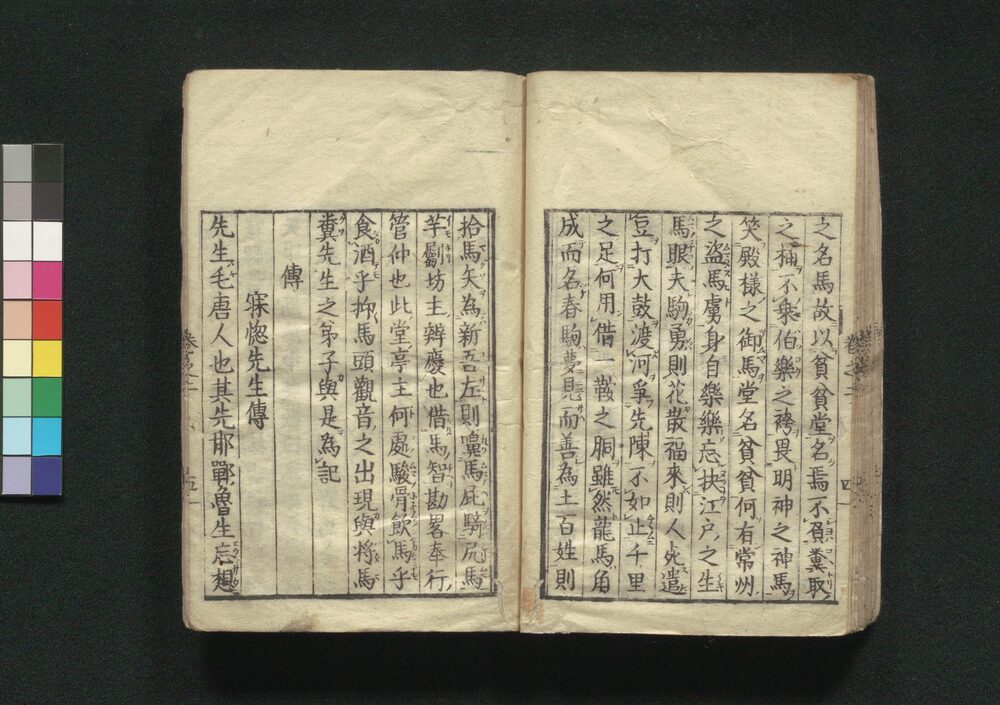 之名馬故以貧貧堂名焉不負糞取
之桶不乗伯樂之袴畏明神之神馬
笑殿様之御馬堂名貧貧何有常州
之盗馬虜身自樂樂忘扶江戸之生
馬眼夫駒勇則花散福來則人死遣
豆打大鼓渡河爭先陳不如止千里
之足何用借一鞍之胴雖然龍馬角
成而名春駒夢見而善為土百姓則
拾馬矢為新吾左則嗅馬屁騎尻馬
芋劚坊主辨慶也借馬智勘畧奉行
管仲也此堂亭主何處駿骨飲馬乎
食酒乎抑馬頭觀音之出現與將馬
糞先生之弟子與是為記
傳
寐惚先生傳
先生毛唐人也其先邯鄲魯生忘想
卷之二
四
五